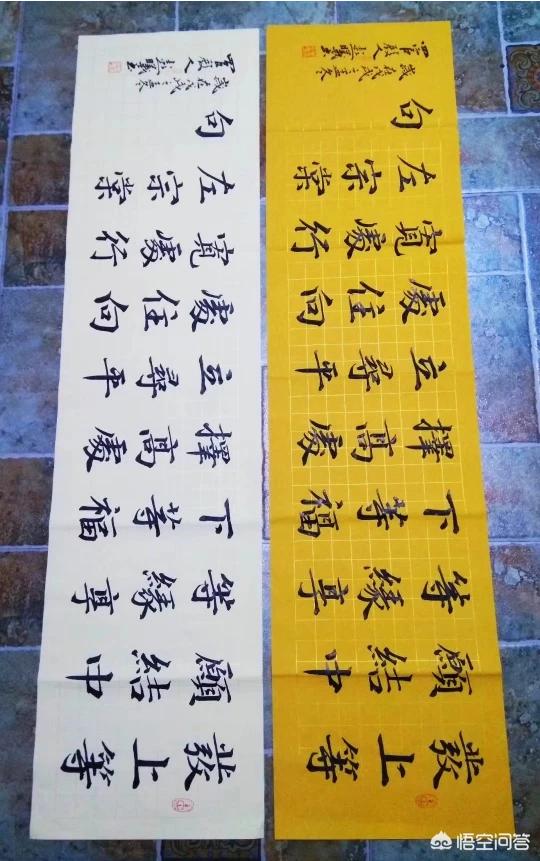 發上等
願結中
等緣享
下等福
擇高處
立尋平
處住向
寬處行
左宗棠
句
歲在戊戌之孟冬
發上等
願結中
等緣享
下等福
擇高處
立尋平
處住向
寬處行
左宗棠
句
歲在戊戌之孟冬
悟空问答